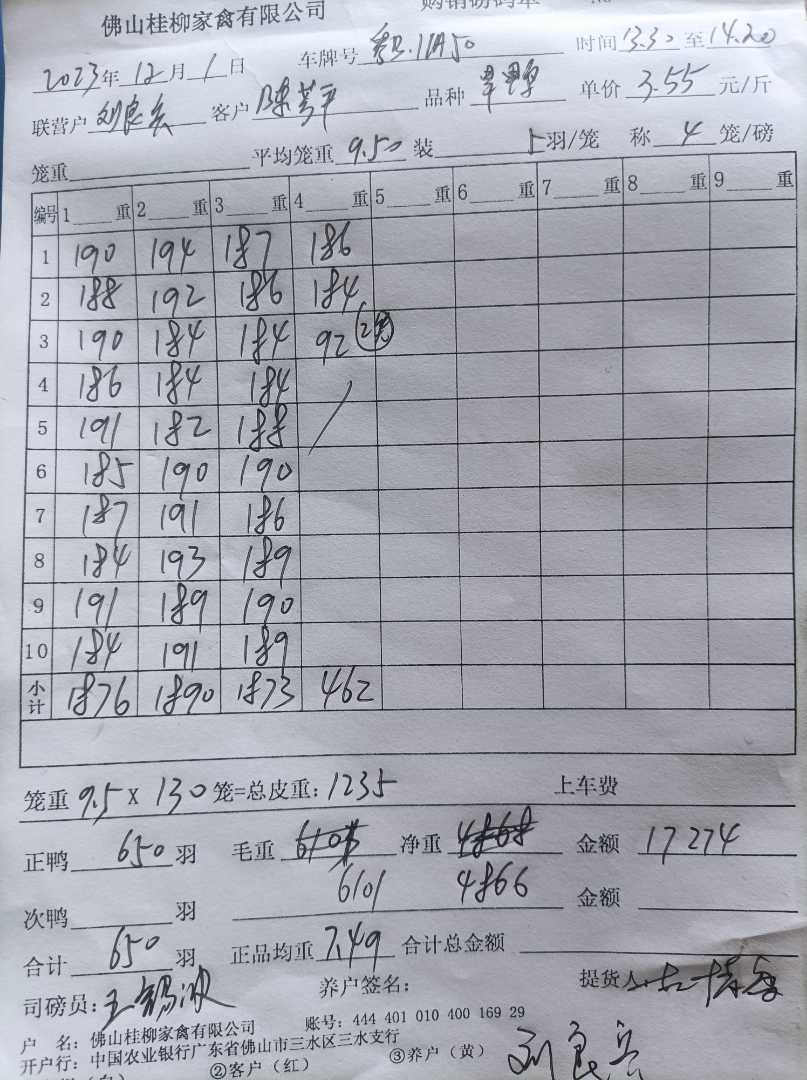 佛山桂柳家禽有限公司 购销磅码单
2023年 12月 1日 车牌号 11A50 时间 13.30 至 14.20
联营户 刘良兵 客户 陈芳平 品种 单价 3.55 元/斤
笼重 平均笼重 9.50 装 5羽/笼 称 4 笼/磅
编号 1 重 2 重 3 重 4 重 5 重 6 重 7 重 8 重 9 重
1 190 194 187 186
2 188 192 186 184
3 190 184 184 92 (2笼)
4 186 184 184
5 191 182 188
6 185 190 190
7 187 191 186
8 184 193 189
9 191 189 190
10 184 191 189
小计 1876 1890 1873 462
笼重 9.5 X 130 笼=总皮重: 1235 上车费
正鸭 650 羽 毛重 净重 4868 金额 17274
次鸭 羽 6101 4866 金额
合计 650 羽 正品均重 7.49 合计总金额
司磅员: 养户签名: 提货人
户 名: 佛山桂柳家禽有限公司 账号: 444 401 010 400 169 29
开户行: 中国农业银行广东省佛山市三水区三水支行
②客户（红） ③养户（黄） 刘良兵